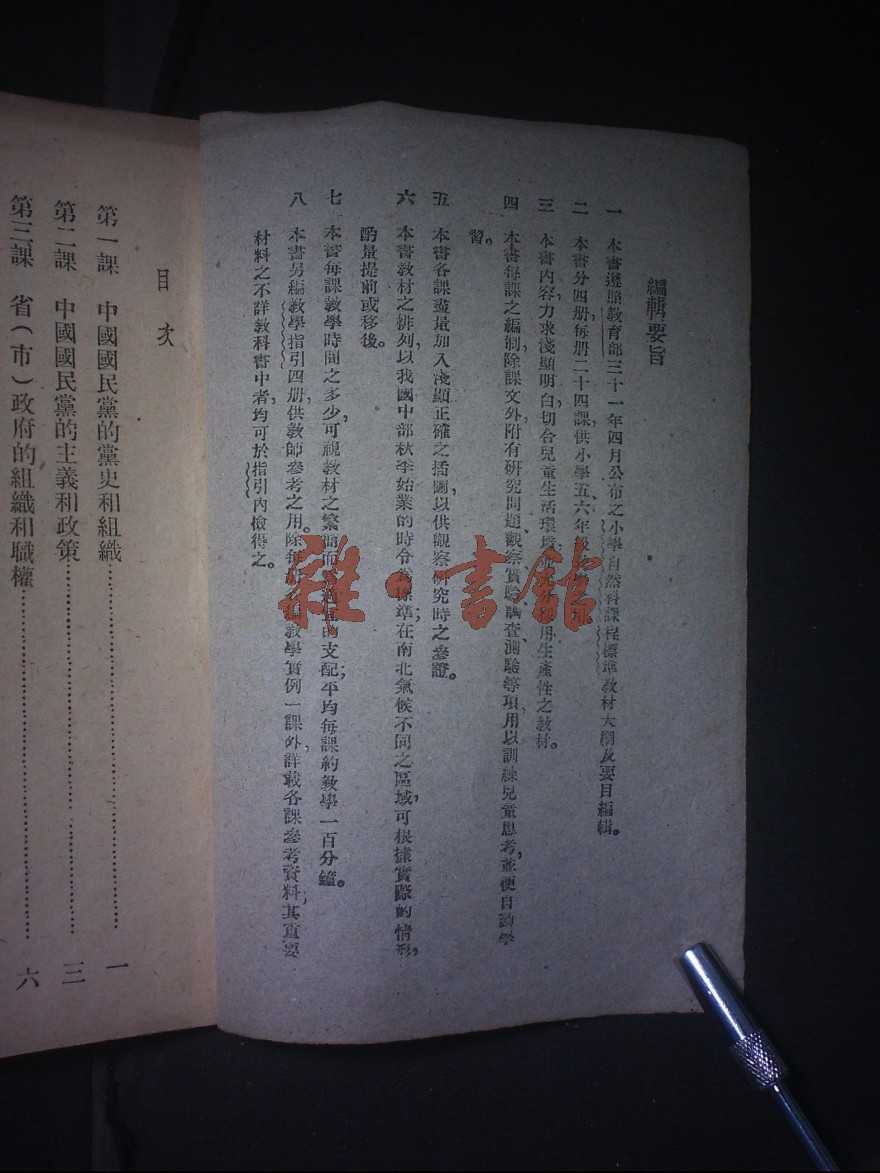 編輯要旨
一 本書遵照教育部三十一年四月公布之小學自然科課程標準教材大綱及要目編輯。
二 本書分四册,每册二十四課,供小學五、六年級
三 本書內容,力求淺顯明白,切合兒童生活環境,用生產性之教材。
四 本書每課之編制,除課文外,附有研究問題、觀察、實驗、調查、測驗等項,用以訓練兒童思考,並便自動學
習。
五 本書各課盡量加入淺顯正確之插圖,以供觀察研究時之參證。
六 本書教材之排列,以我國中部秋季始業的時令為標準;在南北氣候不同之區域,可根據實際的情形,
酌量提前或移後。
七 本書每課教學時間之多少,可視教材之繁簡而的支配;平均每課約教學一百分鐘。
八 本書另編教學指引四册,供教師參考之用。除每教學實例一課外,詳載各課參考資料,其重要
材料之不詳教科書中者,均可於指引內檢得之。
目次
第一課 中國國民黨的黨史和組織……………………一
第二課 中國國民黨的主義和政策……………………三
第三課 省(市)政府的組織和職權……………………六
雜·書館